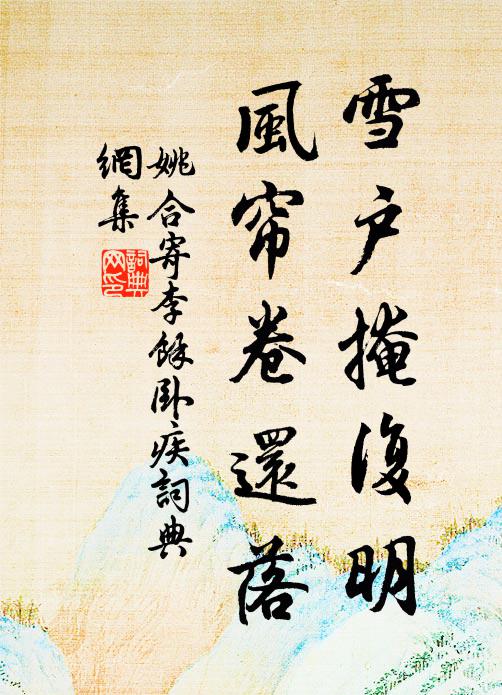 雪户掩復明
風帘卷還落
姚合寄李餘卧疾詞典
網集
詞典
网印